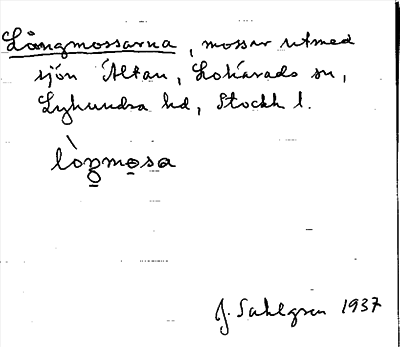 Långmossarna, mossar utmed
sjön Ältan, Lohärads sn,
Lyhundra hd, Stockh l.
lòŋmo̱sa
J. Sahlgren 1937